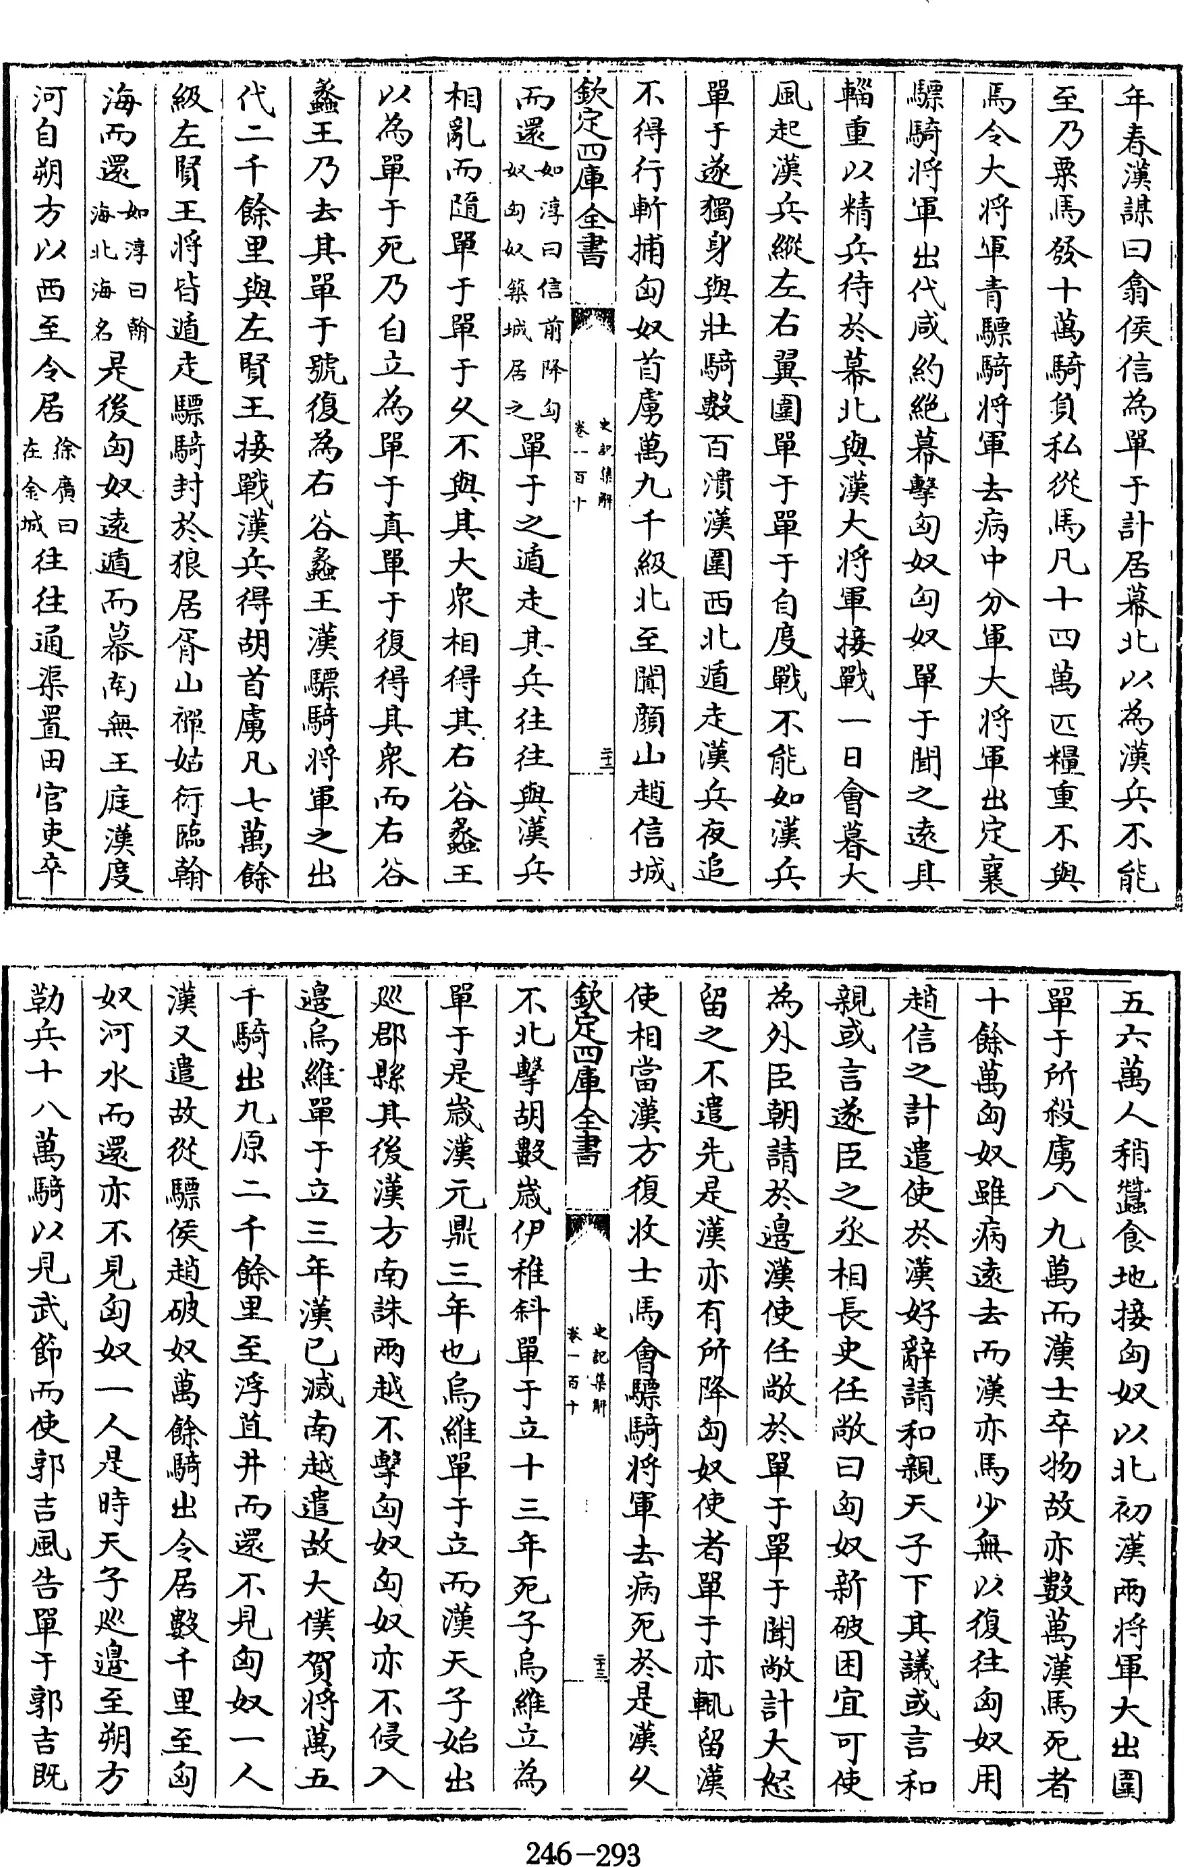 年春漢謀曰翕侯信為單于計居幕北以為漢兵不能
至乃粟馬發十萬騎負私從馬凡十四萬匹糧重不與
焉令大將軍青驃騎將軍去病中分軍大將軍出定襄
驃騎將軍出代咸約絶幕擊匈奴匈奴單于聞之逺其
輜重以精兵待於幕北與漢大將軍接戰一日會暮大
風起漢兵縱左右翼圍單于單于自度戰不能如漢兵
單于遂獨身與壯騎數百潰漢圍西北遁走漢兵夜追
不得行斬捕匈奴首虜萬九千級北至闐顔山趙信城
欽定四庫全書
史記集解
卷一百十
二十二
而還如淳曰信前降匈奴匈奴築城居之單于之遁走其兵往往與漢兵
相亂而隨單于單于久不與其大衆相得其右谷蠡王
以為單于死乃自立為單于真單于復得其衆而右谷
蠡王乃去其單于號復為右谷蠡王漢驃騎將軍之出
代二千餘里與左賢王接戰漢兵得胡首虜凡七萬餘
級左賢王將皆遁走驃騎封於狼居胥山禪姑衍臨翰
海而還如淳曰翰海北海名是後匈奴逺遁而幕南無王庭漢度
河自朔方以西至令居徐廣曰在金城往往通渠置田官吏卒
五六萬人稍蠶食地接匈奴以北初漢兩將軍大出圍
單于所殺虜八九萬而漢士卒物故亦數萬漢馬死者
十餘萬匈奴雖病逺去而漢亦馬少無以復往匈奴用
趙信之計遣使於漢好辭請和親天子下其議或言和
親或言遂臣之丞相長史任敞曰匈奴新破困宜可使
為外臣朝請於邉漢使任敞於單于單于聞敞計大怒
留之不遣先是漢亦有所降匈奴使者單于亦輒留漢
使相當漢方復收士馬會驃騎將軍去病死於是漢久
欽定四庫全書
史記集解
卷一百十
二十三
不北擊胡數嵗伊稚斜單于立十三年死子烏維立為
單于是嵗漢元鼎三年也烏維單于立而漢天子始出
廵郡縣其後漢方南誅兩越不擊匈奴匈奴亦不侵入
邉烏維單于立三年漢已滅南越遣故太僕賀將萬五
千騎出九原二千餘里至浮苴井而還不見匈奴一人
漢又遣故從驃侯趙破奴萬餘騎出令居數千里至匈
奴河水而還亦不見匈奴一人是時天子廵邉至朔方
勒兵十八萬騎以見武節而使郭吉風告單于郭吉既
246-293